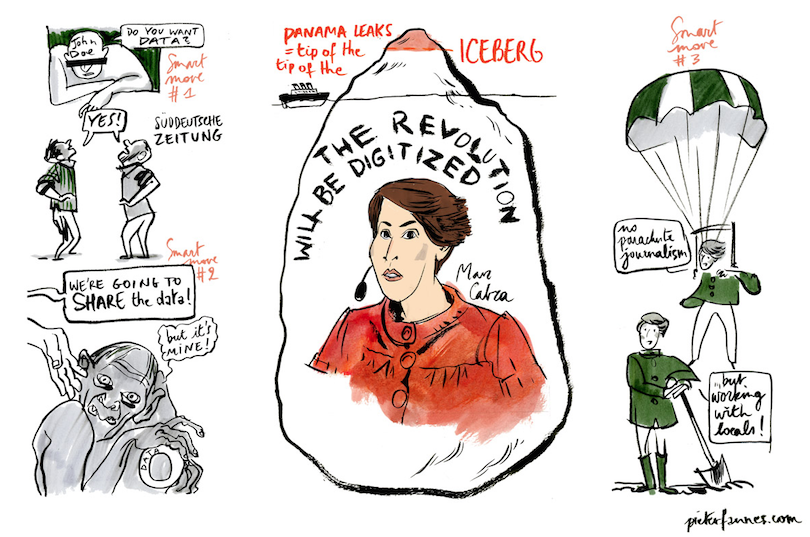 John
Doe
DO YOU WANT
DATA?
Smart
move
#1
YES!
SÜDDEUTSCHE
ZEITUNG
Smart
move
#2
WE'RE GOING TO
SHARE the data!
but it's
MINE!
DATA
PANAMA LEAKS
= tip of the
tip of the
ICEBERG
THE REVOLUTION
WILL BE DIGITIZED
Mar
Cabra
Smart
move
#3
no
parachute
journalism
...but
working
with
locals!
pieterfannes.com